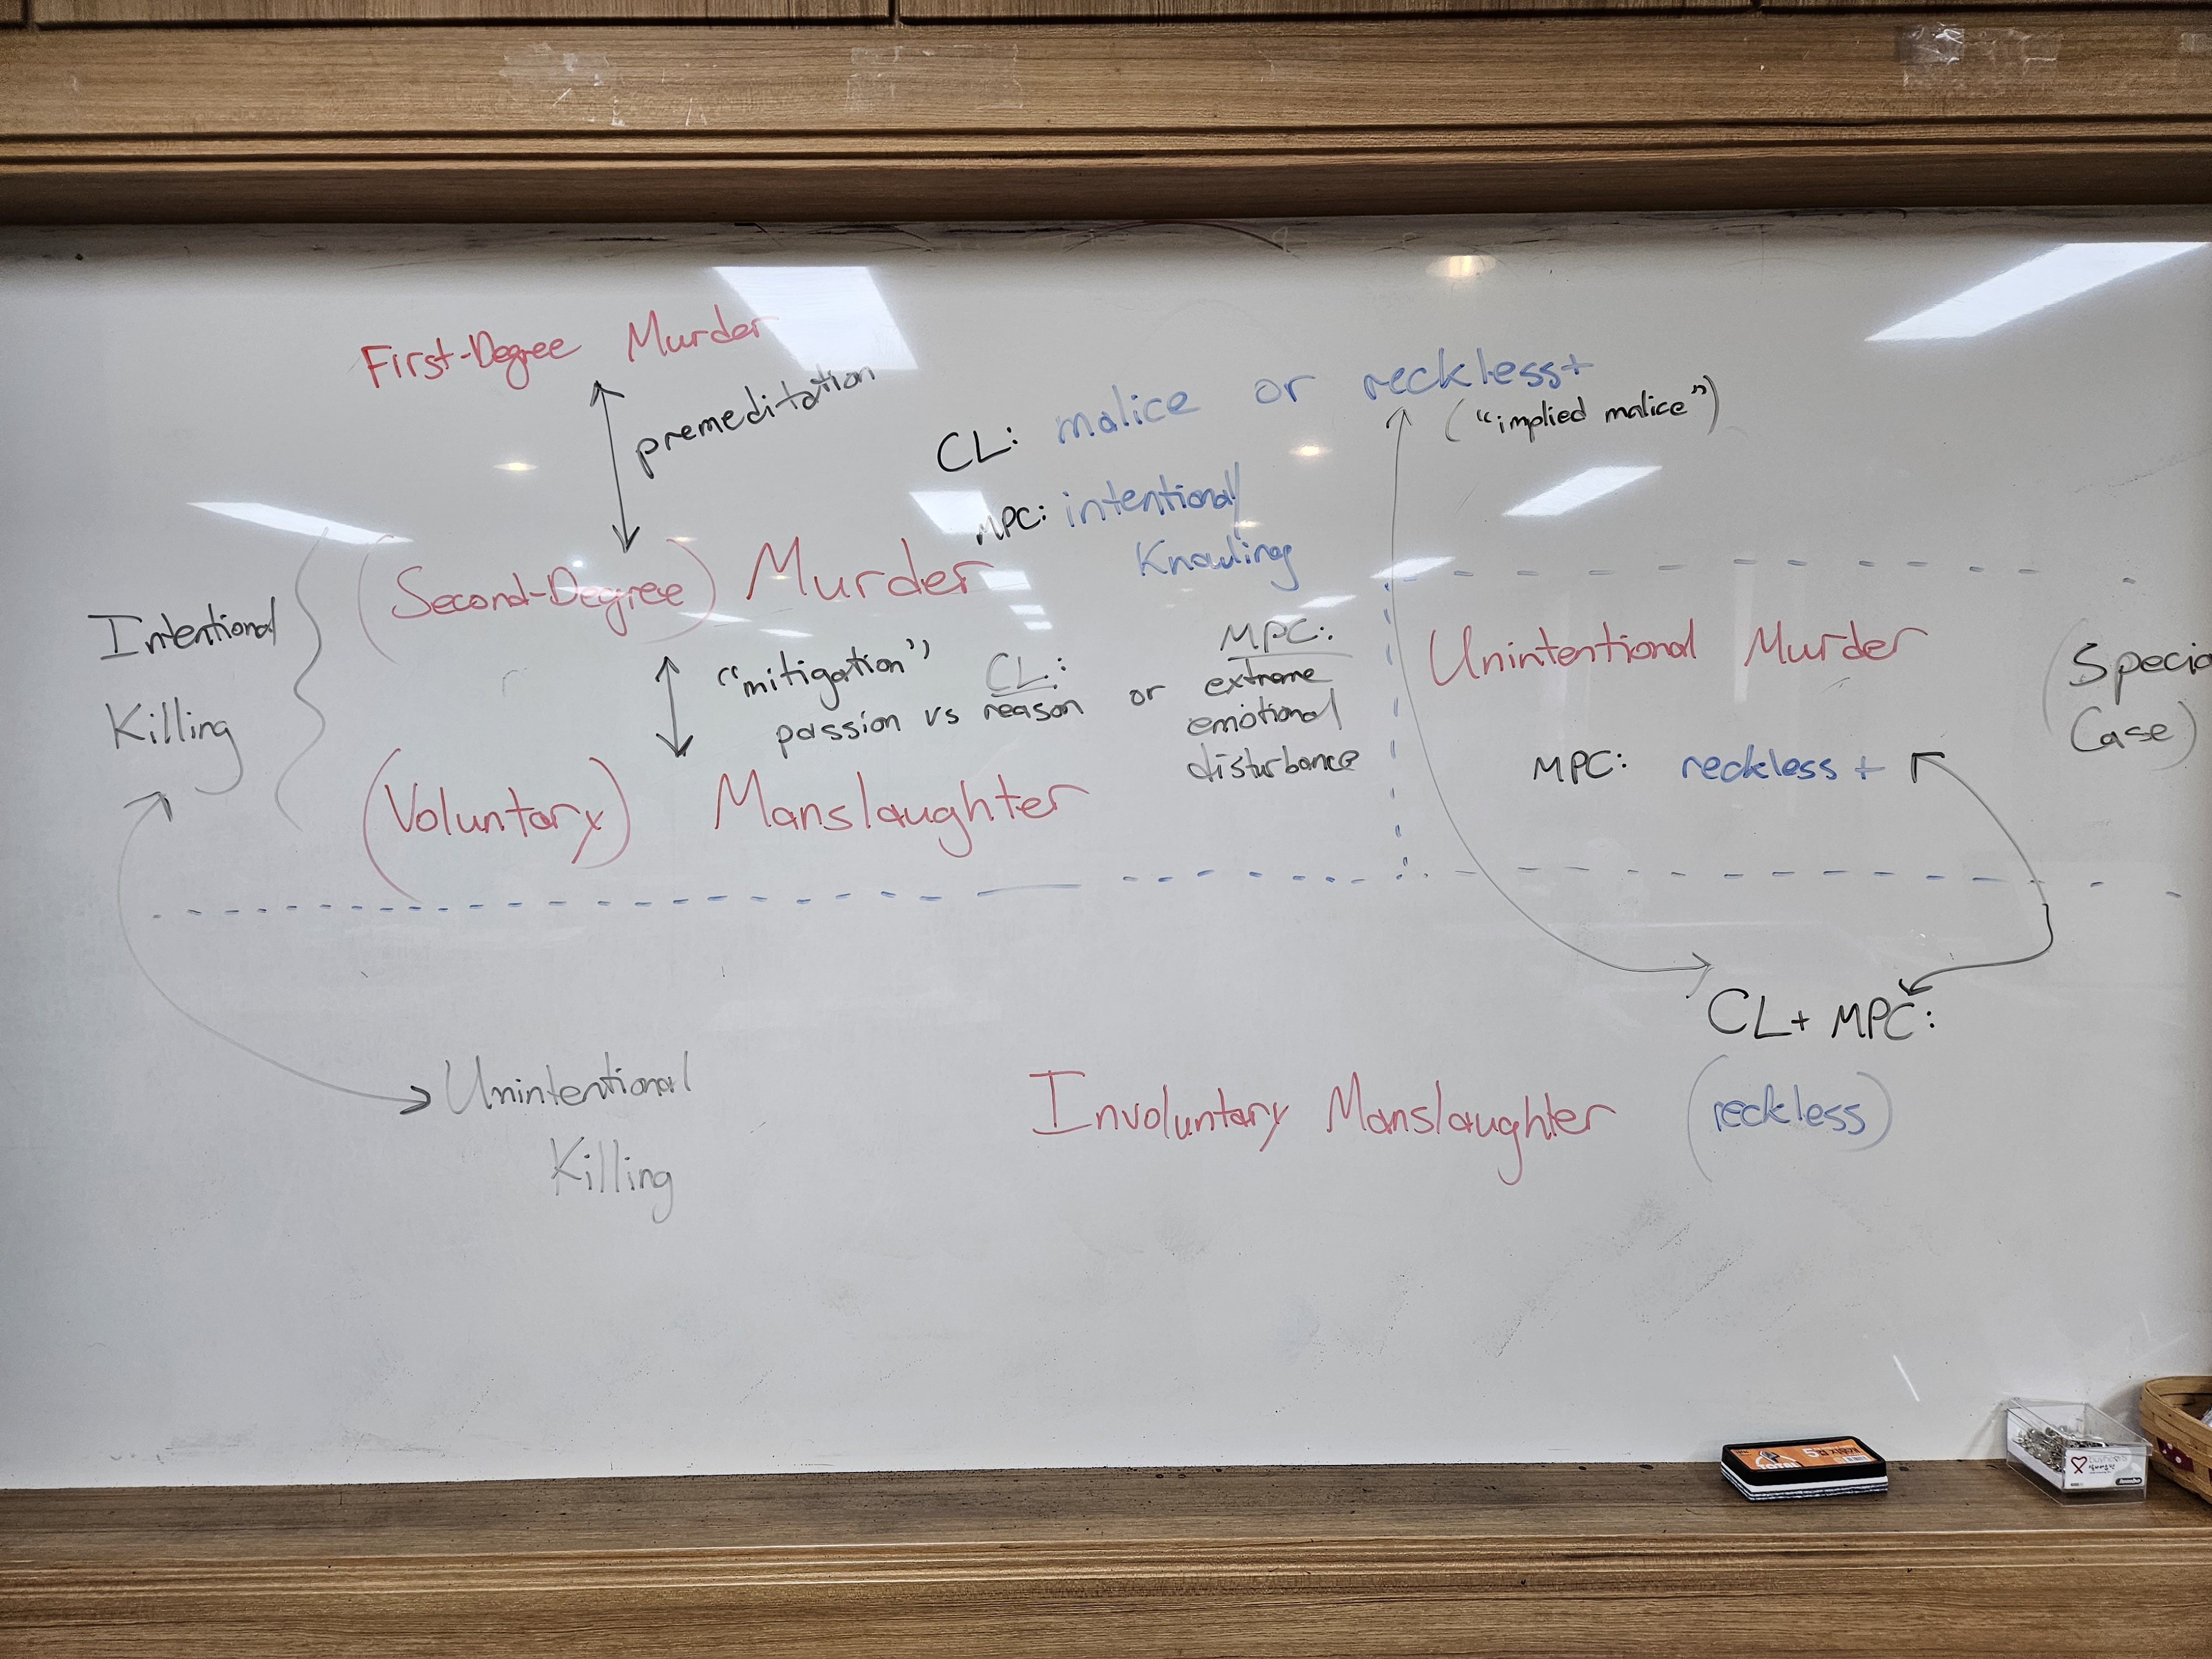 First-Degree Murder
premeditation
CL: malice or reckless+
("implied malice")
MPC: intentional/
Knowing
(Second-Degree) Murder
Intentional
Killing
"mitigation"
CL:
passion vs reason
or
MPC:
extreme
emotional
disturbance
(Voluntary) Manslaughter
Unintentional Murder
MPC: reckless +
(Specia
Case)
CL+ MPC:
Unintentional
Killing
Involuntary Manslaughter (reckless)
TOTAL